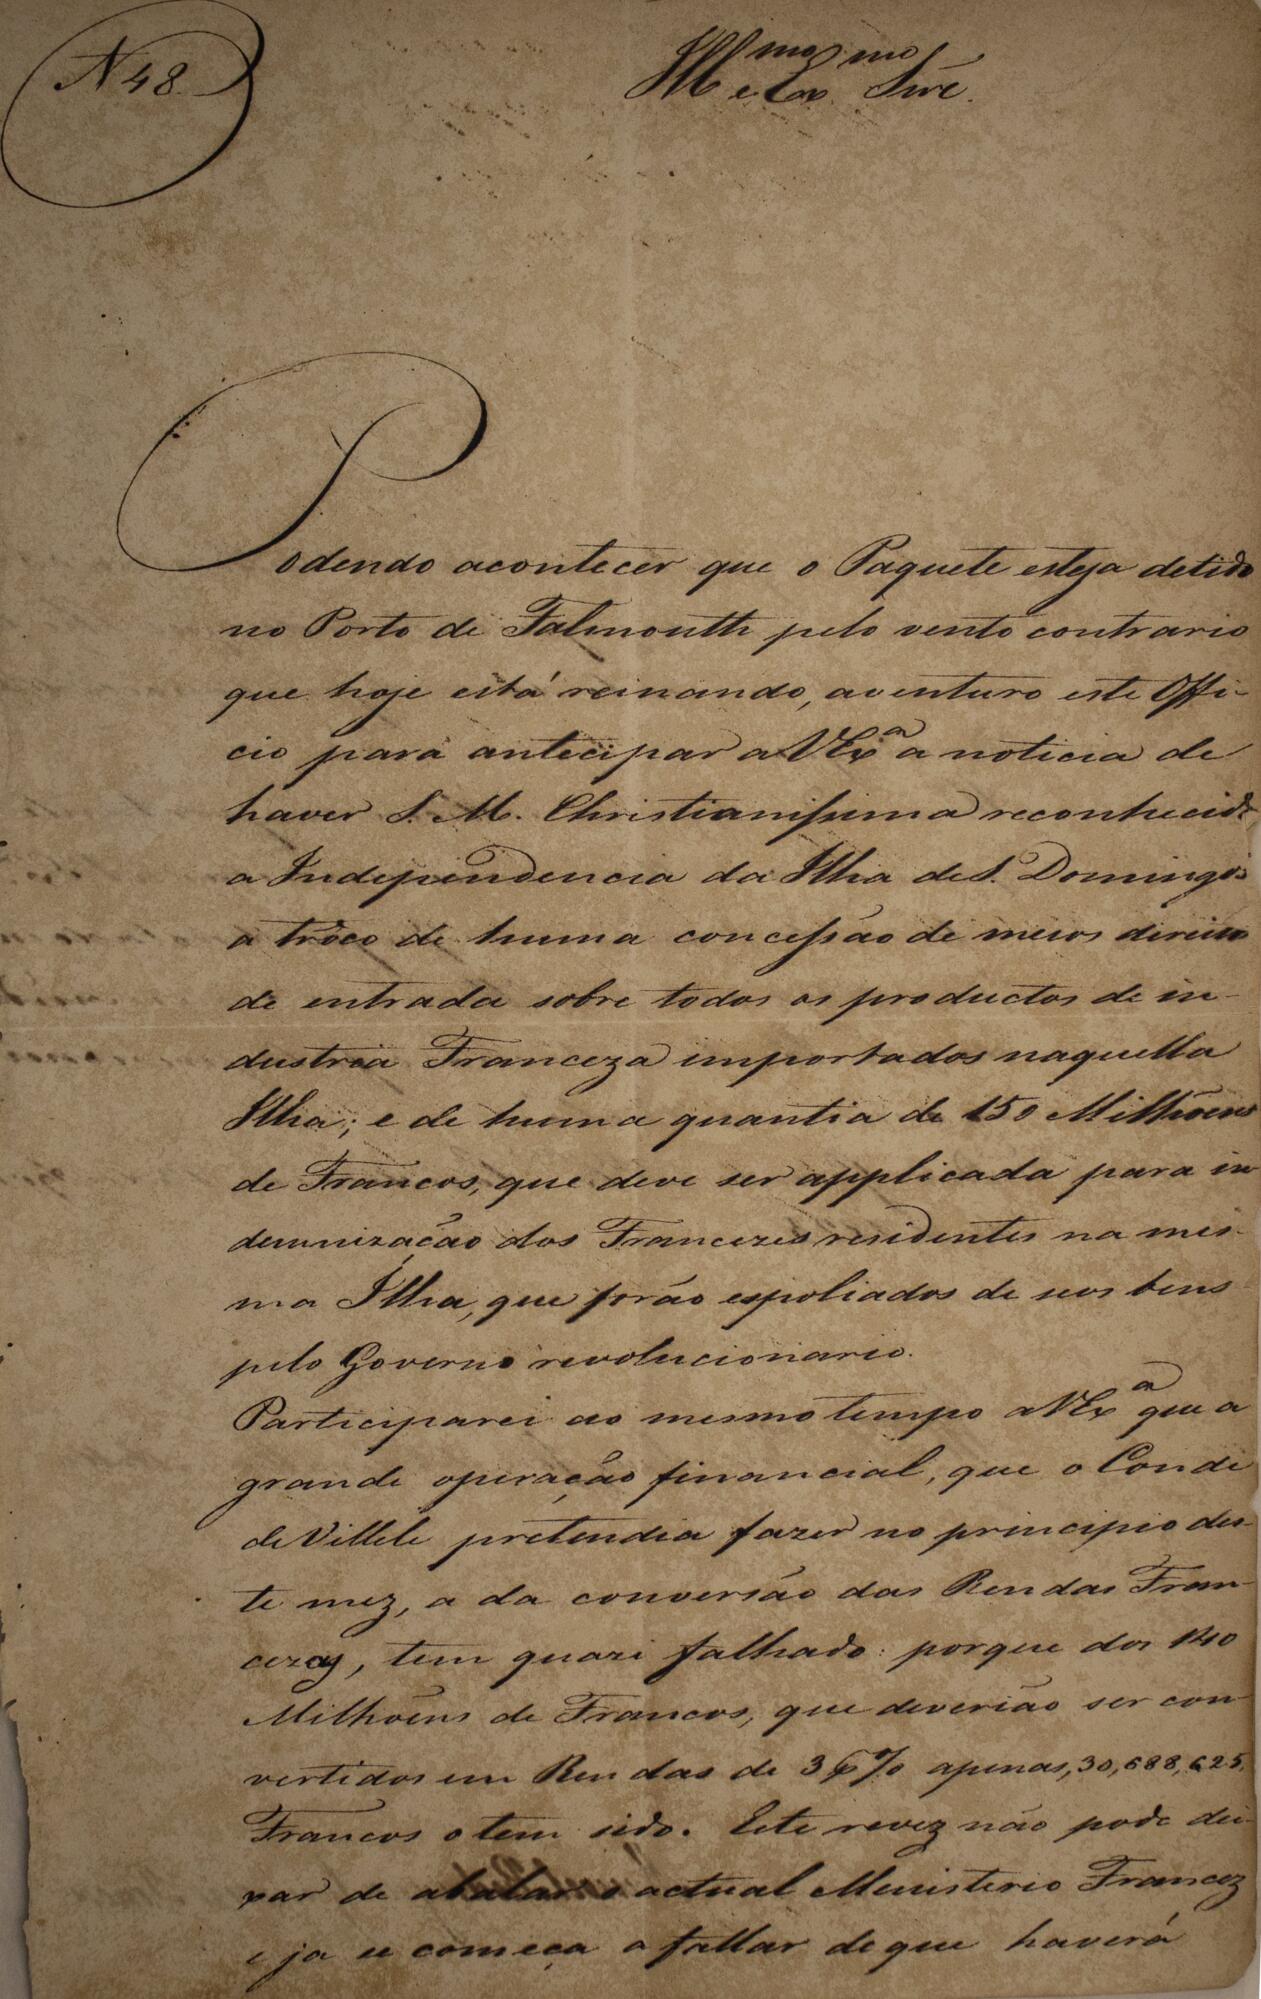 N 48
Ill.mo e Ex.mo Snr.
Podendo acontecer que o Paquete esteja detido
no Porto de Falmouth pelo vento contrario
que hoje está reinando, aventuro este Offi-
cio para antecipar a VEx.a a noticia de
haver S. M. Christianissima reconhecido
a Independencia da Ilha de S. Domingos
a trôco de huma concessão de meios direitos
de entrada sobre todos os productos de in-
dustria Franceza importados naquella
Ilha; e de huma quantia de 150 Milhoens
de Francos, que deve ser applicada para in
demnização dos Francezes residentes na mes-
ma Ilha, que forão espoliados de seos bens
pelo Governo revolucionario.
Participarei ao mesmo tempo a VEx.a que a
grande operação financial, que o Conde
de Villele pretendia fazer no principio des-
te mez, a da conversão das Rendas Fran-
cezas, tem quazi falhado: porque dos 140
Milhoens de Francos, que deverião ser con
vertidos em Rendas de 3 p% apenas, 30,688,625,
Francos o tem sido. Este revez não pode dei-
xar de abalar o actual Ministerio Francez
e ja se começa a fallar de que haverá